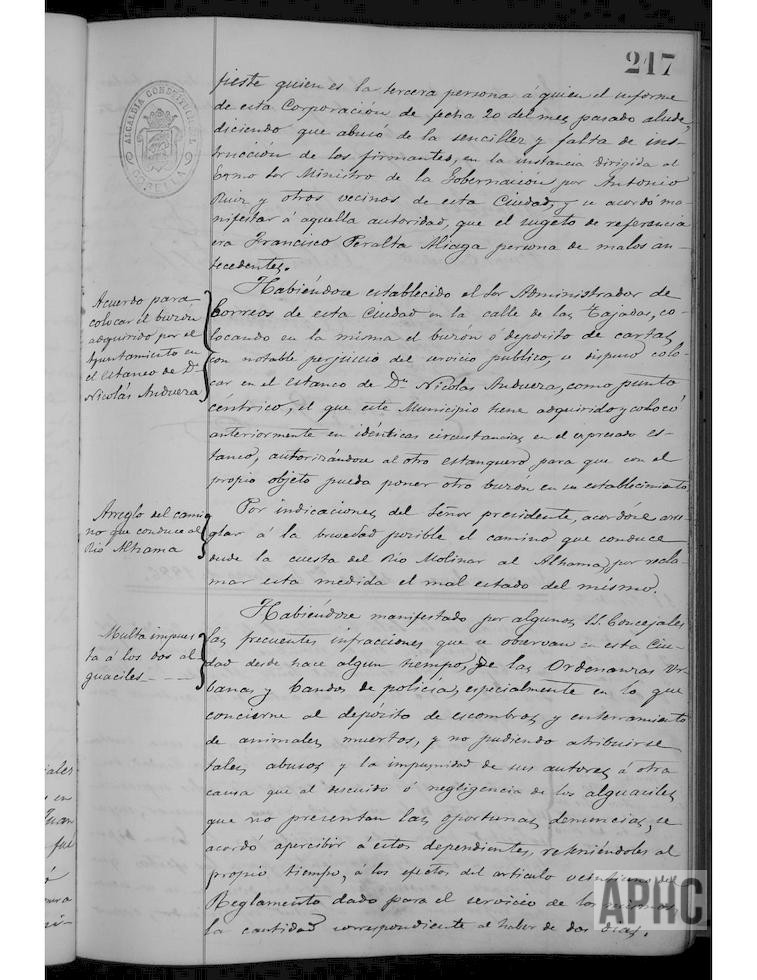 217
ALCALDIA CONSTITUCIONAL
CORELLA
fieste quien es la tercera persona á quien el informe
de esta Corporación de fecha 20 del mes pasado alude,
diciendo que abusó de la sencillez y falta de ins-
trucción de los firmantes, en la instancia dirigida al
Excmo Sor Ministro de la Gobernación por Antonio
Ruiz y otros vecinos de esta Ciudad, y se acordó ma-
nifestar á aquella autoridad, que el sugeto de referencia
era Francisco Peralta Aliaga persona de malos an-
tecedentes.
Acuerdo para
colocar el buzón
adquirido por el
Ayuntamiento en
el estanco de Dn
Nicolás Andueza
Habiéndose establecido el Sor Administrador de
Correos de esta Ciudad en la calle de las Tajadas, co-
locando en la misma el buzón ó depósito de cartas,
con notable perjuicio del servicio publico, se dispuso colo-
car en el estanco de Dn Nicolás Andueza, como punto
céntrico, el que este Municipio tiene adquirido y colocó
anteriormente en idénticas circustancias en el expresado es-
tanco, autorizándose al otro estanquero para que con el
propio objeto pueda poner otro buzón en su establecimiento
Arreglo del cami
no que conduce al
Rio Alhama
Por indicaciones del Señor presidente, acordóse arre-
glar á la brevedad posible el camino que conduce
desde la cuesta del Rio Molinar al Alhama, por recla-
mar esta medida el mal estado del mismo.
Multa impues
ta á los dos al-
guaciles
Habiéndose manifestado por algunos S.S. Concejales
las frecuentes infracciones que se observan en esta Ciu-
dad desde hace algun tiempo, de las Ordenanzas Ur-
banas y bandos de policía, especialmente en lo que
concierne al depósito de escombros y enterramiento
de animales muertos, y no pudiendo atribuirse
tales abusos y la impunidad de sus autores á otra
causa que al descuido ó negligencia de los alguaciles
que no presentan las oportunas denuncias, se
acordó apercibir á estos dependientes, reteniéndoles al
propio tiempo, á los efectos del artículo veintiuno del
Reglamento dado para el servicio de los mismos,
la cantidad correspondiente al haber de dos dias.
APHC